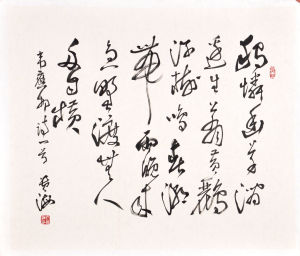 獨憐幽草澗
邊生上有黄鸝
深樹鳴春潮
帶雨晚來
急野渡無人
舟自横
韋應物詩一首